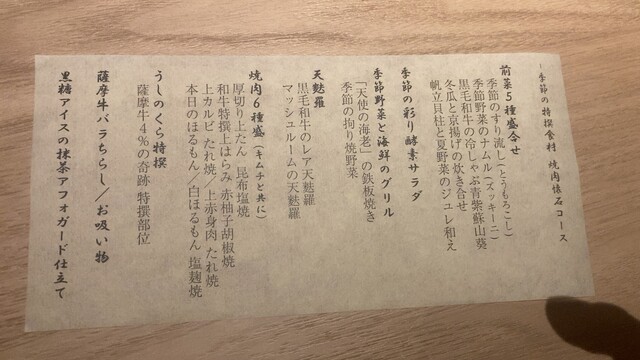 -季節の特撰食料 焼肉懐石コース
前菜5種盛合せ
季節のすり流し(とうもろこし)
季節野菜のナムル(ズッキーニ)
黒毛和牛の冷しゃぶ青紫蘇山葵
冬瓜と京揚げの炊き合せ
帆立貝柱と夏野菜のジュレ和え
季節の彩り酵素サラダ
季節野菜と海鮮のグリル
「天使の海老」の鉄板焼き
季節の拘り焼野菜
天麩羅
黒毛和牛のレア天麩羅
マッシュルームの天麩羅
焼肉6種盛(キムチと共に)
厚切り上たん 昆布塩焼
和牛特撰上はらみ 赤柚子胡椒焼
上カルビ たれ焼/上赤身肉 たれ焼
本日のほるもん/白ほるもん 塩麹焼
うしのくら特撰
薩摩牛4%の奇跡 特撰部位
薩摩牛バラちらし/お吸い物
黒糖アイスの抹茶アフォガード仕立て